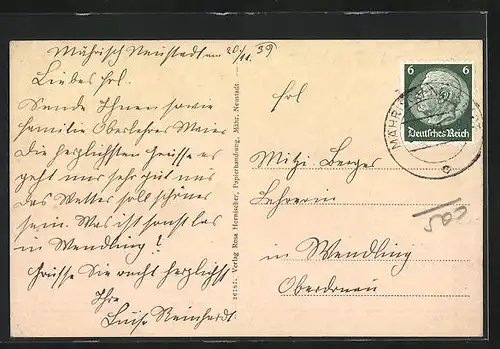 Mährisch Neustadt am 20/11. 39
Liebes Frl.
Sende Ihnen sowie
Familie Oberlehrer Maier
die herzlichsten Grüsse es
geht uns sehr gut nur
das Wetter soll schöner
sein. Was ist sonst los
in Wendling?
Grüsse Sie recht herzlichst
Ihre
Luise Reinhardt.
16757. Verlag Rosa Hernischer, Papierhandlung, Mähr. Neustadt
Frl
Mitzi Berger
Lehrerin
in Wendling
Oberdonau
6 6
Deutsches Reich
MÄHR